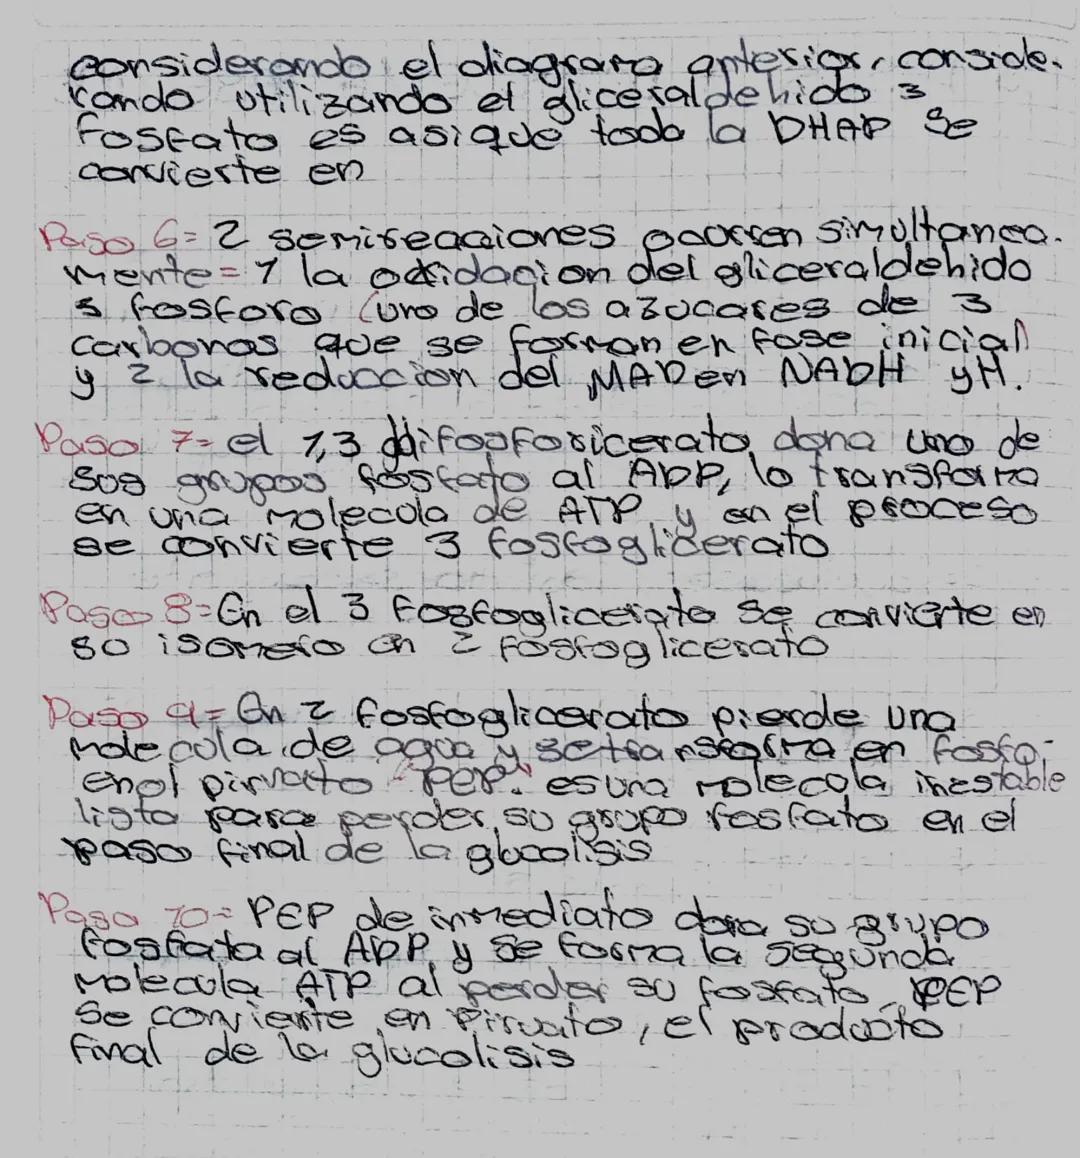 considerando el diagrama anterior, conside-
rando utilizando el gliceraldehido 3
fosfato es asi que toda la DHAP se
convierte en
Paso 6= 2 semireacciones ocurren simultanea-
mente= 1 la oxidacion del gliceraldehido
3 fosforo (uno de los azucares de 3
carbonos que se forman en fase inicial
y 2 la reduccion del NAD en NADH y H.
Paso 7= el 1,3 difosforicerato dona uno de
sus grupos fosfato al ADP, lo transforma
en una molecula de ATP y en el proceso
se convierte 3 fosfoglicerato
Paso 8= En el 3 fosfoglicerato se convierte en
so isomero en 2 fosfoglicerato
Paso 9= En 2 fosfoglicerato pierde una
molecula de agua y se transforma en fosfo-
enol pirvato "PEP". es una molecula inestable
lista para perder su grupo fosfato en el
paso final de la glucolisis
Paso 10= PEP de inmediato dona su grupo
fosfata al ADP y se forma la segunda
molecula ATP al perder su fosfato PEP
se convierte en Piruato, el producto
final de la glucolisis